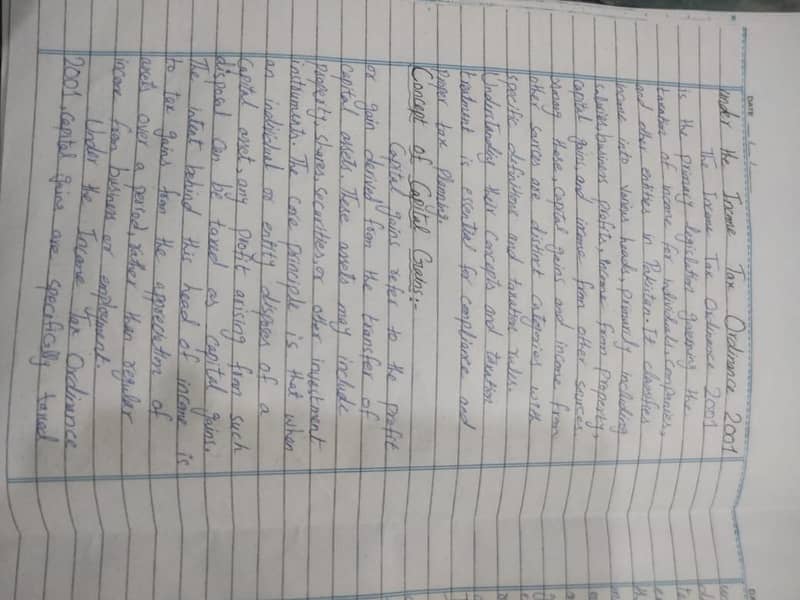 DATE
under the Income Tax Ordinance 2001
The Income Tax Ordinance 2001
is the primary legislation governing the
taxation of income for individuals, companies,
and other entities in Pakistan. It classifies
income into various heads, primarily including
salaries, business profits, income from property,
capital gains, and income from other sources.
among these, capital gains and income from
other sources are distinct categories with
specific definitions and taxation rules.
Understanding their concepts and taxation
treatment is essential for compliance and
proper tax planning.
Concept of Capital Gains:-
Capital gains refer to the profit
or gain derived from the transfer of
capital assets. These assets may include
property, shares, securities, or other investment
instruments. The core principle is that when
an individual or entity disposes of a
capital asset, any profit arising from such
disposal can be taxed as capital gain.
The intent behind this head of income is
to tax gains from the appreciation of
assets over a period, rather than regular
income from business or employment.
Under the Income Tax Ordinance
2001, capital gains are specifically taxed